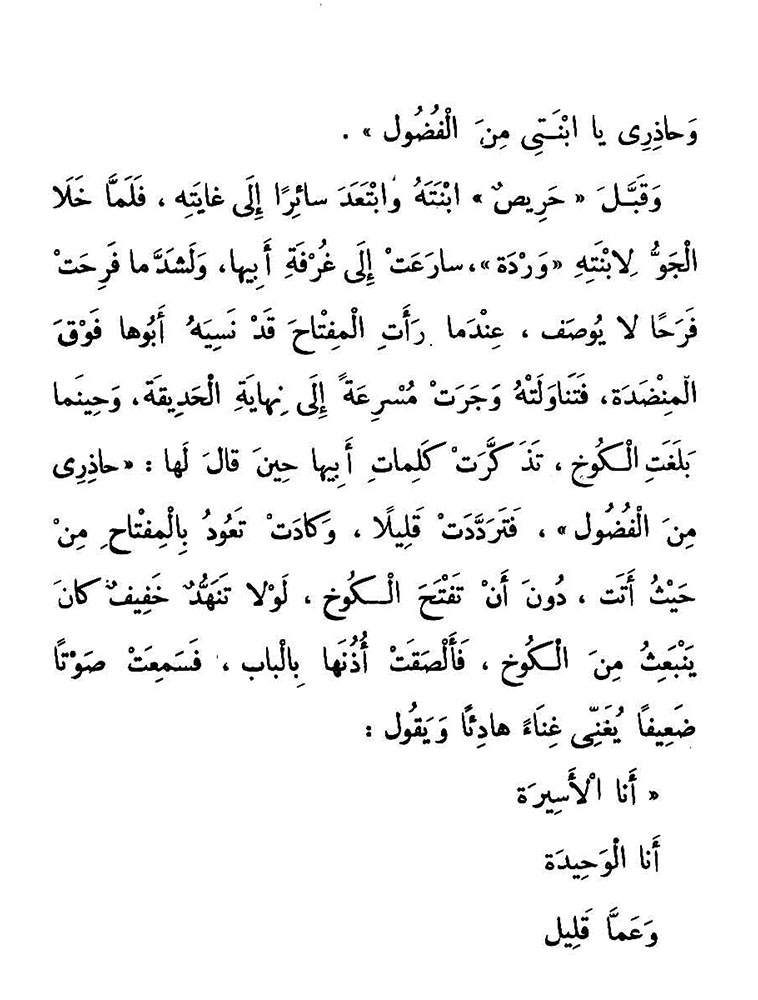 وَحاذِرِى يا ابْنَـتِى مِنَ الْفُضُول » .
وَقَبَّـلَ « حَرِيصٌ » ابْنَتَهُ وَابْتَعَدَ سائِرًا إِلَى غايَتِهِ ، فَلَمَّا خَلَا
الْجَوُّ لِابْنَتِهِ «وَرْدَة» ، سارَعَتْ إِلَى غُرْفَةِ أَبِيها، وَلَشدَّ ما فَرِحَتْ
فَرَحًا لا يُوصَف ، عِنْدَما رَأَتِ الْمِفْتاحَ قَدْ نَسِيَهُ أَبُوها فَوْقَ
الْمِنْضَدَة، فَتَناوَلَتْهُ وَجَرَتْ مُسْرِعَةً إِلَى نِهايَةِ الْحَدِيقَة، وَحِينَما
بَلَغَتِ الْـكُوخ ، تَذَكَّرَتْ كَلِماتِ أَبِيها حِينَ قالَ لَها : «حاذِرِى
مِنَ الْفُضُول» ، فَتَرَدَّدَتْ قَلِيلًا ، وَكادَتْ تَعُودُ بِالْمِفْتاحِ مِنْ
حَيْثُ أَتَت ، دُونَ أَنْ تَفْتَحَ الْـكُوخ ، لَوْلا تَنَهُّدٌ خَفِيفٌ كانَ
يَنْبَعِثُ مِنَ الْـكُوخ ، فَأَلْصَقَتْ أُذُنَها بِالْباب ، فَسَمِعَتْ صَوْتًا
ضَعِيفًا يُغَنِّى غِناءً هادِئًا وَيَقُول :
« أَنا الْأَسِيرَة
أَنا الْوَحِيدَة
وَعَمَّا قَلِيل